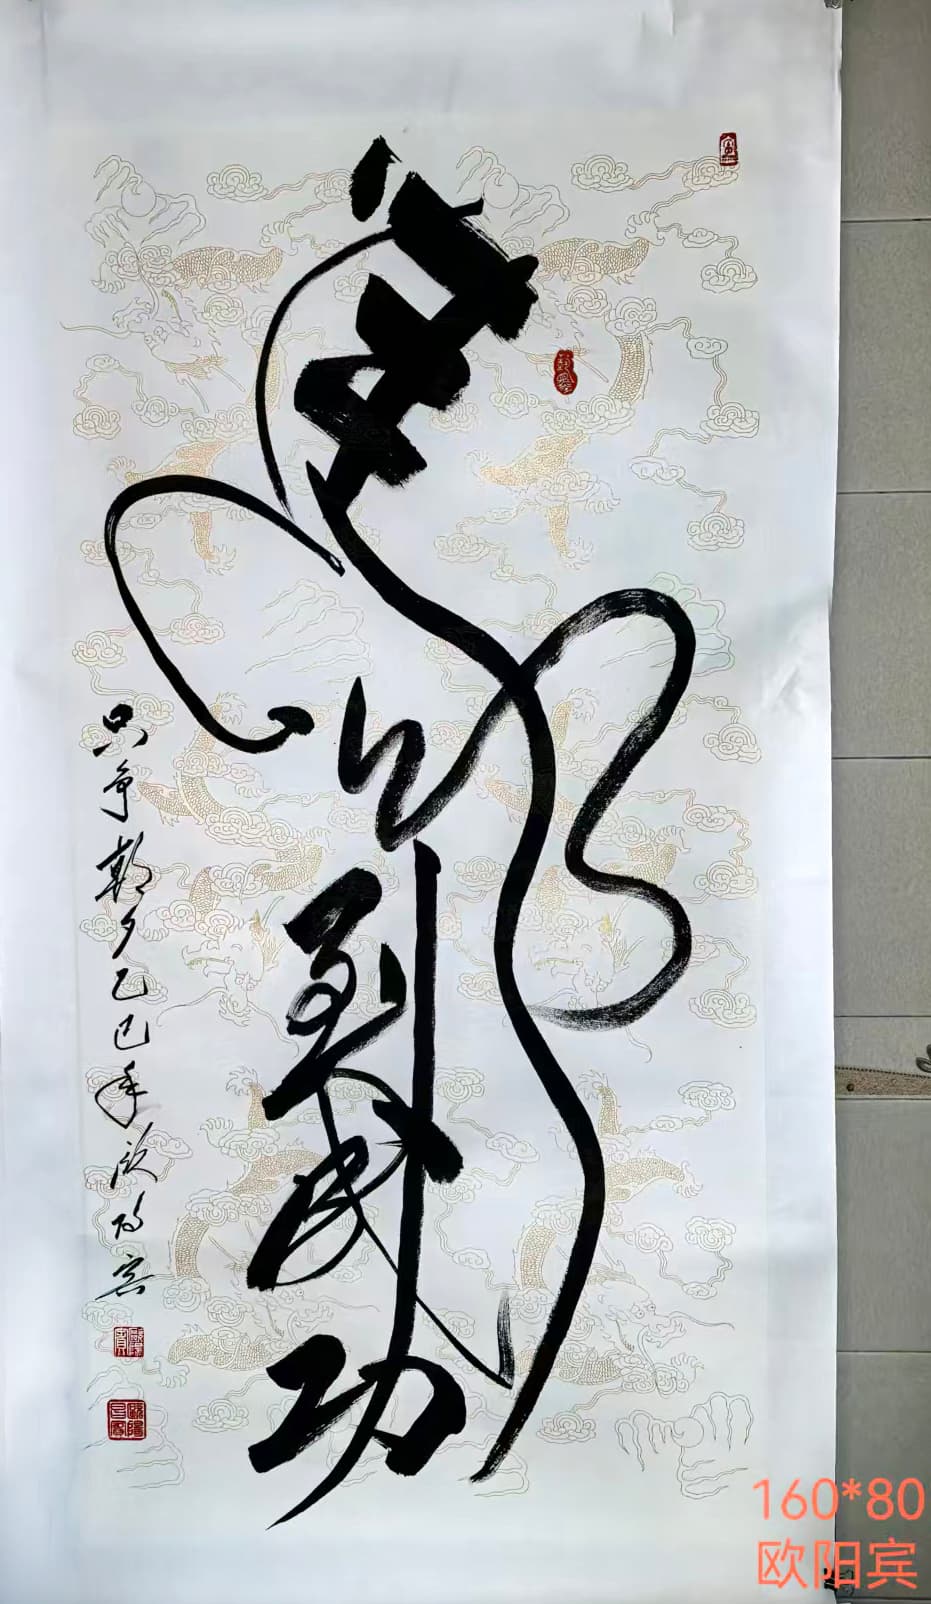 馬到成功
只争朝夕乙巳年欧阳宾
160*80
欧阳宾